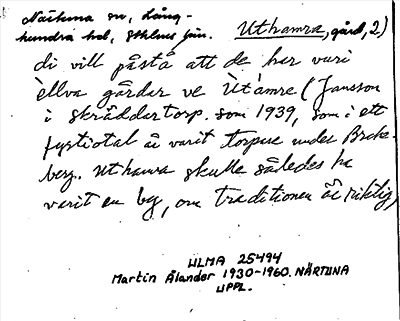 Närtuna sn, Lång-
hundra hd, Sthlms län.
Uthamra, gård, 2.)
di vill påstå att de har vari
ellva gårdar ve Ùtàmre (Jansson
i skräddartorp. som 1939, som i ett
fyrtiotal år varit torpare under Broke-
berg. Uthamra skulle således ha
varit en by, om traditionen är riktig)
ULMA 25494
Martin Ålander 1930-1960. NÄRTUNA
UPPL.